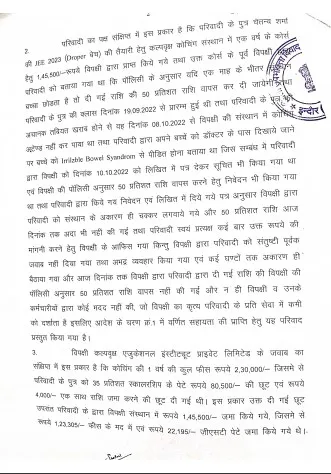 2
2. परिवादी का पक्ष संक्षिप्त में इस प्रकार है कि परिवादी के पुत्र चेतन्य शर्मा
की JEE 2023 (Droper बेच) की तैयारी हेतु कल्पवृक्ष कोचिंग संस्थान में एक वर्ष के कोर्स
हेतु 1,45,500/-रूपये विपक्षी द्वारा प्राप्त किये गये तथा उक्त कोर्स के पूर्व विपक्षी
परिवादी को बताया गया था कि पॉलिसी के अनुसार यदि एक माह के भीतर
बच्चा छोडता है तो दी गई राशि की 50 प्रतिशत राशि वापस कर दी जायेगी तथा
परिवादी के पुत्र की क्लास दिनांक 19.09.2022 से प्रारम्भ हुई थी तथा परिवादी के
अचानक तबियत खराब होने से यह दिनांक 08.10.2022 से विपक्षी की संस्थान में कोचिंग
अटेण्ड नहीं कर पाया था तथा परिवादी द्वारा अपने बच्चे को डॉक्टर के पास दिखाये जाने
पर बच्चे को Irrilzble Bowel Syandrom से पीडित होना बताया था जिस सम्बंध में परिवादी
द्वारा विपक्षी को दिनांक 10.10.2022 को लिखित में पत्र देकर सूचित भी किया गया था
एवं विपक्षी की पॉलिसी अनुसार 50 प्रतिशत राशि वापस करने हेतु निवेदन भी किया गया
था तथा परिवादी द्वारा किये गये निवेदन एवं लिखित में दिये गये पत्र अनुसार विपक्षी द्वारा
परिवादी को संस्थान के अकारण ही चक्कर लगवाये गये और 50 प्रतिशत राशि आज
दिनांक तक अदा भी नही की गई तथा परिवादी स्वयं प्रत्यक्ष कई बार उक्त रूपये की
मांगनी करने हेतु विपक्षी के आफिस गया किन्तु विपक्षी द्वारा परिवादी को संतुष्टी पूर्वक
जवाब नहीं दिया गया तथा अभद्र व्यवहार किया गया एवं कई घण्टों तक अकारण ही
बैठाया गया और आज दिनांक तक विपक्षी द्वारा परिवादी द्वारा दी गई राशि की विपक्षी की
पॉलिसी अनुसार 50 प्रतिशत राशि वापस नही की गई और न ही विपक्षी व उनके
कर्मचारीयों द्वारा कोई मदद नही की, जो विपक्षी का कृत्य परिवादी के प्रति सेवा में कमी
को दर्शाता है इसलिए आदेश के चरण क्रं.1 में वर्णित सहायता की प्राप्ति हेतु यह परिवाद
प्रस्तुत किया गया है।
3. विपक्षी कल्पवृक्ष एजुकेशनल इंस्टीट्यूट प्राइवेट लिमिटेड के जवाब का
संक्षिप्त में इस प्रकार है कि कोचिंग की 1 वर्ष की कुल फीस रूपये 2,30,000/- जिसमे से
परिवादी के पुत्र को 35 प्रतिशत स्कालरशिप के पेटे रूपये 80,500/- की छूट एवं रूपये
4,000/- एक साथ राशि जमा करने की छूट दी गई थी। इस प्रकार उक्त दी गई छूट
उपरांत परिवादी के द्वारा विपक्षी संस्थान में रूपये 1,45,500/- जमा किये गये, जिसमे से
रूपये 1,23,305/- फीस के मद में एवं रूपये 22,195/- जीएसटी पेटे जमा किये गये थे।
इन्दौर